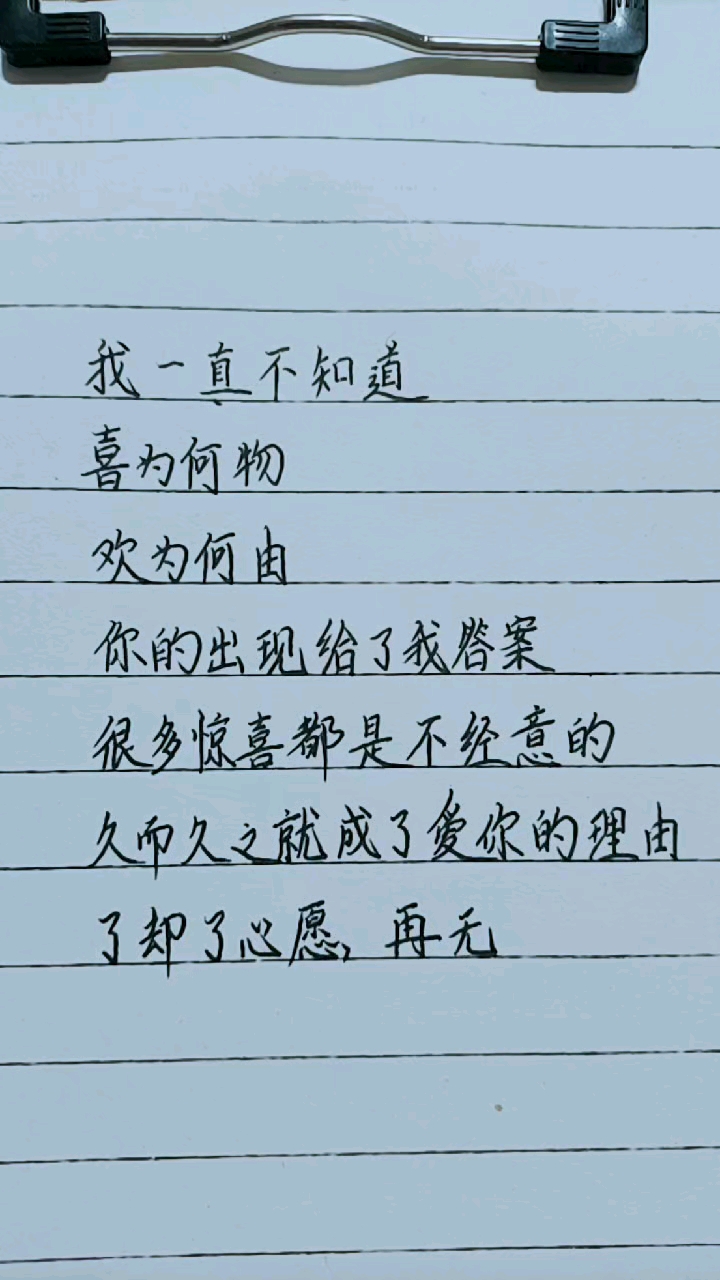 我一直不知道
喜为何物
欢为何由
你的出现给了我答案
很多惊喜都是不经意的
久而久之就成了爱你的理由
了却了心愿，再无